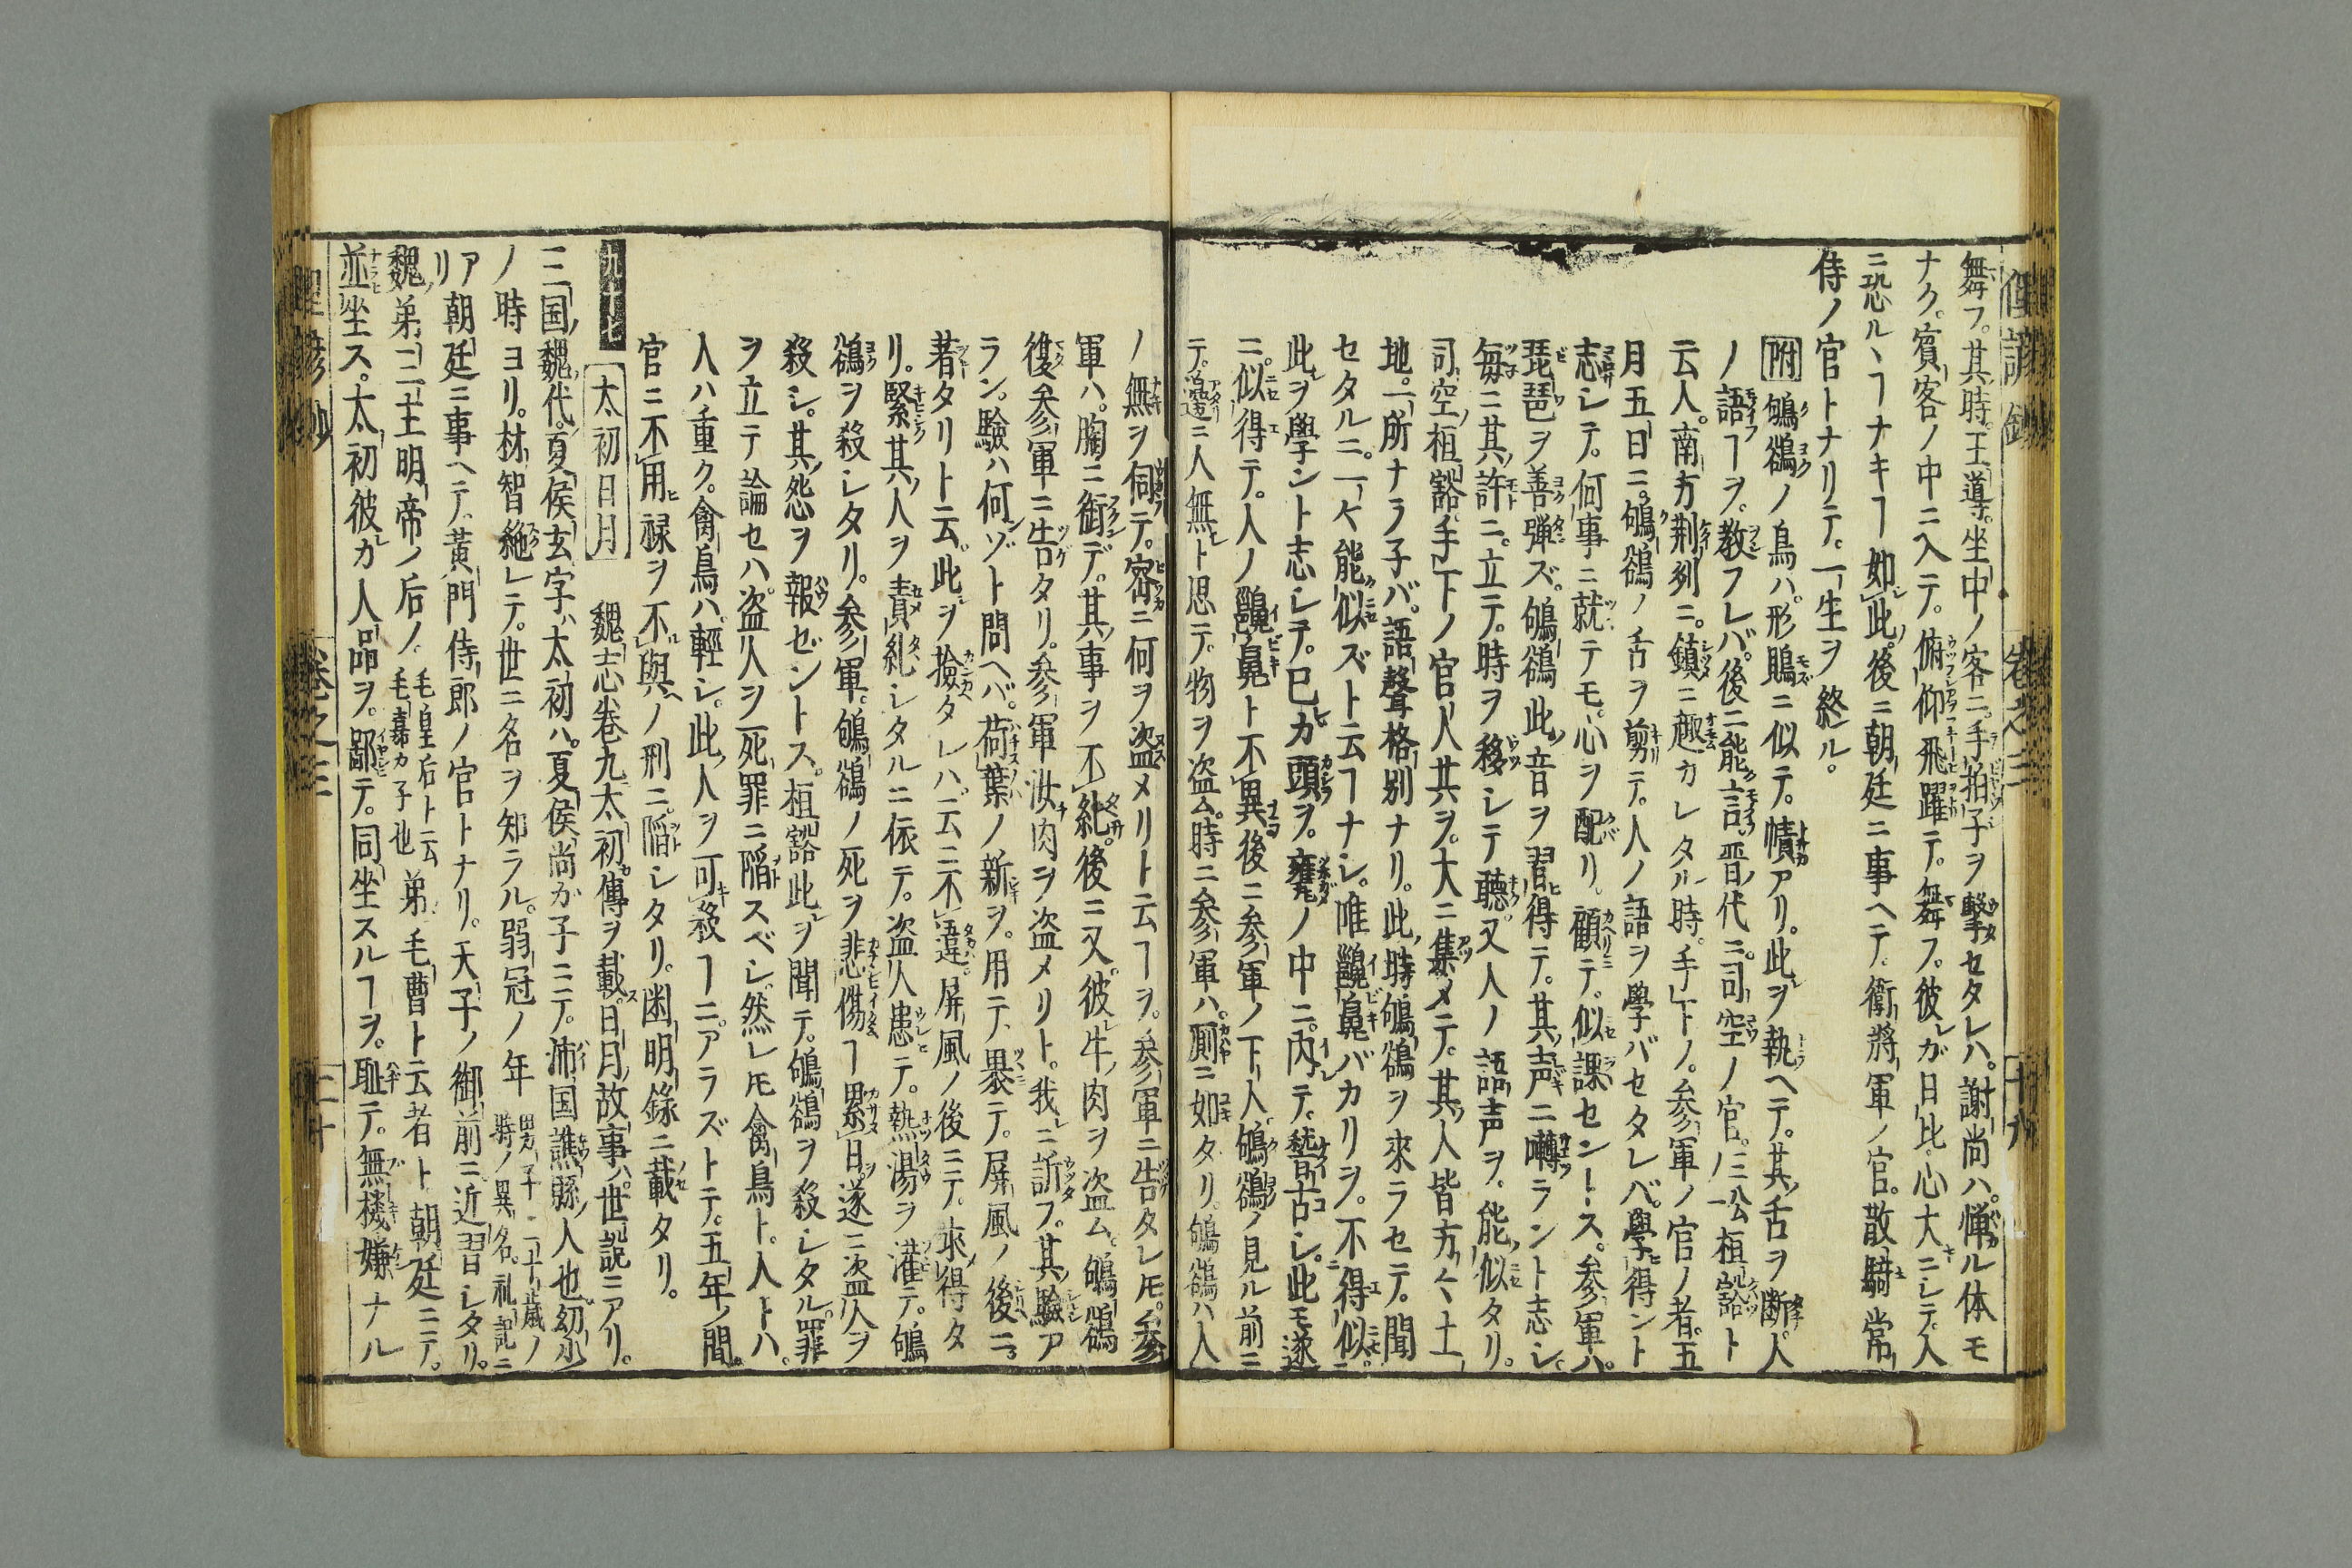 舞フ。其時。王導。坐中ノ客ニ。手拍子ヲ撃セタレハ。謝尚ハ。憚ル体モ
ナク。賓客ノ中ニ入テ。俯仰飛躍テ。舞フ。彼ガ日比。心大ニシテ。人
ニ恐ル丶ヿナキヿ如此。後ニ朝廷ニ事ヘテ。衛將軍ノ官。散騎常
侍ノ官トナリテ。一生ヲ終ル。
附 鴝鵒ノ鳥ハ。形鵙ニ似テ。幘アリ。此ヲ執ヘテ。其舌ヲ断。人
ノ語ヿヲ。教フレバ。後ニ能言。晋代ニ。司空ノ官。三公桓豁ト
云人。南方荊列ニ。鎮ニ趣カレタル時。手下ノ。参軍ノ官ノ者。五
月五日ニ。鴝鵒ノ舌ヲ剪テ。人ノ語ヲ學バセタレバ。學得ント
志シテ。何事ニ就テモ。心ヲ配リ。顧テ。似課センーース。参軍ハ。
琵琶ヲ善弾ズ。鴝鵒此音ヲ習得テ。其声ニ囀ラント志シ。
毎ニ其許ニ。立テ。時ヲ移シテ聴。又人ノ語声ヲ。能似タリ。
司空桓豁。手下ノ官人其ヲ。大ニ集メテ。其人皆方々土
地。一所ナラ子バ。語聲格別ナリ。此時鴝鵒ヲ來ラセテ。聞
セタルニ。一々能似ズト云ヿナシ。唯齆鼻バカリヲ。不得似。
此ヲ學ント志シテ。己カ頭ヲ。甕ノ中ニ。内テ。稽古シ。此モ遂
ニ。似得テ。人ノ齆鼻ト不異。後ニ参軍ノ下人。鴝鵒ノ見ル前ニ
テ。邉ニ人無ト思テ。物ヲ盗ム。時ニ参軍ハ。厠ニ如タリ。鴝鵒ハ人
ノ無ヲ伺テ。密ニ何ヲ盗メリト云ヿヲ。参軍ニ告タレ𪜈。参
軍ハ。胸ニ銜デ。其事ヲ不糺。後ニ又。彼牛肉ヲ盗ム。鴝鵒
復参軍ニ告タリ。参軍汝肉ヲ盗メリト。我ニ訴フ。其驗ア
ラン。驗ハ何ゾト問ヘバ。荷葉ノ新ヲ。用テ。裹テ。屏風ノ後ニ
著タリト云。此ヲ撿タレハ。云ニ不違。屏風ノ後ニテ。求得タ
リ。緊其人ヲ責糺シタルニ依テ。盗人患テ。熱湯ヲ灌テ。鴝
鵒ヲ殺シタリ。参軍。鴝鵒ノ死ヲ悲傷ヿ累日。遂ニ盗人ヲ
殺シ。其怨ヲ報ゼントス。桓豁此ヲ聞テ。鴝鵒ヲ殺シタル。罪
ヲ立テ論セハ。盗人ヲ死罪ニ陥スベシ。然レ𪜈禽鳥ト。人トハ。
人ハ重ク。禽鳥ハ。輕シ。此人ヲ可殺ヿニ。アラズトテ。五年ノ間。
官ニ不用禄ヲ不與。ノ刑ニ。陥シタリ。幽明錄ニ載タリ。
九十七 太初日月 魏志巻九太初傳ヲ載。日月故事ハ。世説ニアリ。
三国魏代。夏侯玄字ハ太初ハ。夏侯尚が子ニテ。沛国譙縣人也。幼少
ノ時ヨリ。材智絶レテ。世ニ名ヲ知ラル。弱冠ノ年 男子二十歳ノ時ノ異名。礼記ニ
アリ 朝廷ニ事ヘテ。黄門侍郎ノ官トナリ。天子ノ御前ニ近習シタリ。
魏弟二主明帝ノ后ノ。 毛皇后ト云毛嘉カ子也 弟毛曹ト云者ト朝廷ニテ。
並坐ス。太初彼カ人品ヲ。鄙テ。同坐スルヿヲ。耻テ。無機嫌ナル
巻之三
十九
巻之三
二十